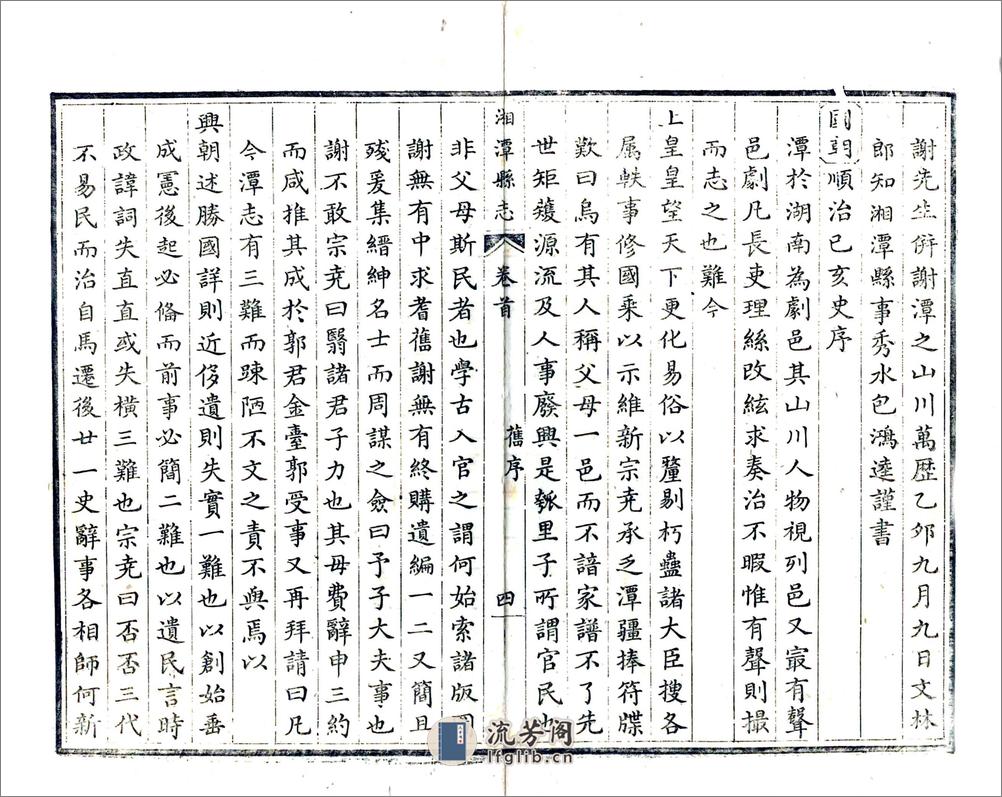 謝先生併謝潭之山川萬歷乙夘九月九日文林
郎知湘潭縣事秀水包鴻逵謹書
國朝順治己亥史序
潭於湖南為劇邑其山川人物視列邑又㝡有聲
邑劇凡長吏理絲改絃求奏治不暇惟有聲則撮
而志之也難今
上皇皇望天下更化易俗以釐剔朽蠱諸大臣搜各
属軼事修國乘以示維新宗尭承乏潭疆捧符牒
歎曰烏有其人稱父母一邑而不諳家譜不了先
世矩矱源流及人事廢興是瓠里子所謂官民也
湘潭縣志 卷首 舊序 四
非父母斯民者也學古入官之謂何始索諸版圖
謝無有中求耆舊謝無有終購遺編一二又簡且
殘爰集縉紳名士而周謀之僉曰予子大夫事也
謝不敢宗尭曰翳諸君子力也其毋費辭申三約
而咸推其成於郭君金臺郭受事又再拜請曰凡
今潭志有三難而踈陋不文之責不與焉以
興朝述勝國詳則近侈遺則失實一難也以創始垂
成憲後起必備而前事必簡二難也以遺民言時
政諱詞失直直或失橫三難也宗尭曰否否三代
不易民而治自馬遷後廿一史辭事各相師何新
流芳阁
lfglib.cn